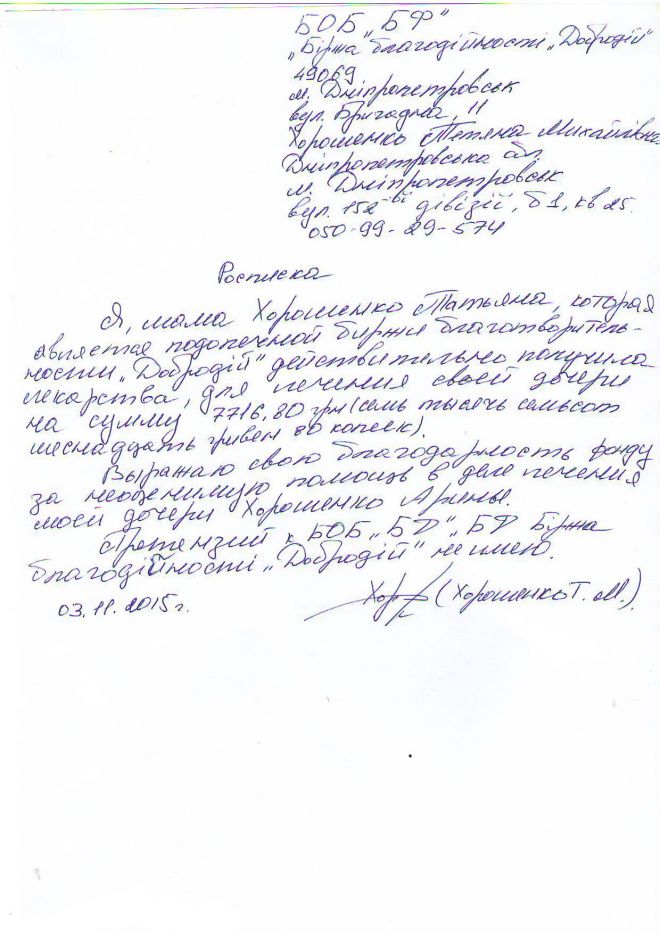 БОБ „БФ"
„Біржа благодійності „Добродій"
49069
м. Дніпропетровськ
вул. Бригадна, 11
Хорошенко Тетяна Михайлівна
Дніпропетровська обл,
м. Дніпропетровськ
вул. 152-ої дівізії, б 1, кв 25.
050-99-29-574
Росписка
Я, мама Хорошенко Татьяна, которая
является подопечной биржи благотворитель-
ности „Добродій" действительно получила
лекарства, для лечения своей дочери
на сумму 7716,80 грн (семь тысячь семьсот
шеснадцать гривен 80 копеек).
Выражаю свою благодарность фонду
за неоценимую помощь в деле лечения
моей дочери Хорошенко Арины.
Претензий к БОБ „БФ", БФ Біржа
благодійності „Добродій" не имею.
03.11.2015г. Хор (Хорошенко Т. М.).